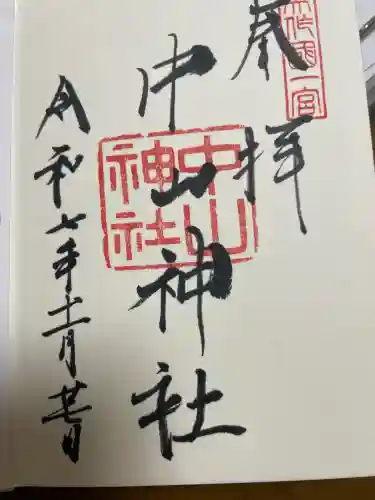 美作國一宮
奉拝
中山神社
中山神社
令和七年十一月廿七日